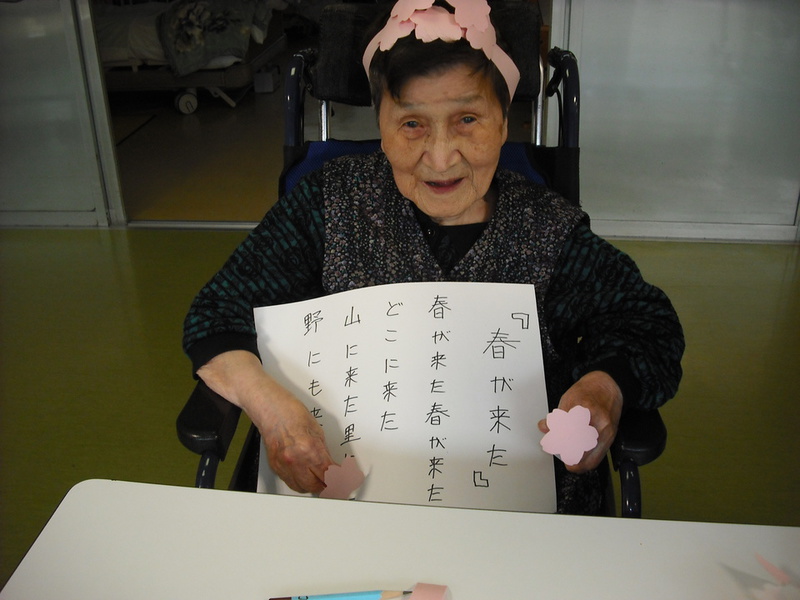 『春が来た』
春が来た春が来た
どこに来た
山に来た里に
野にも